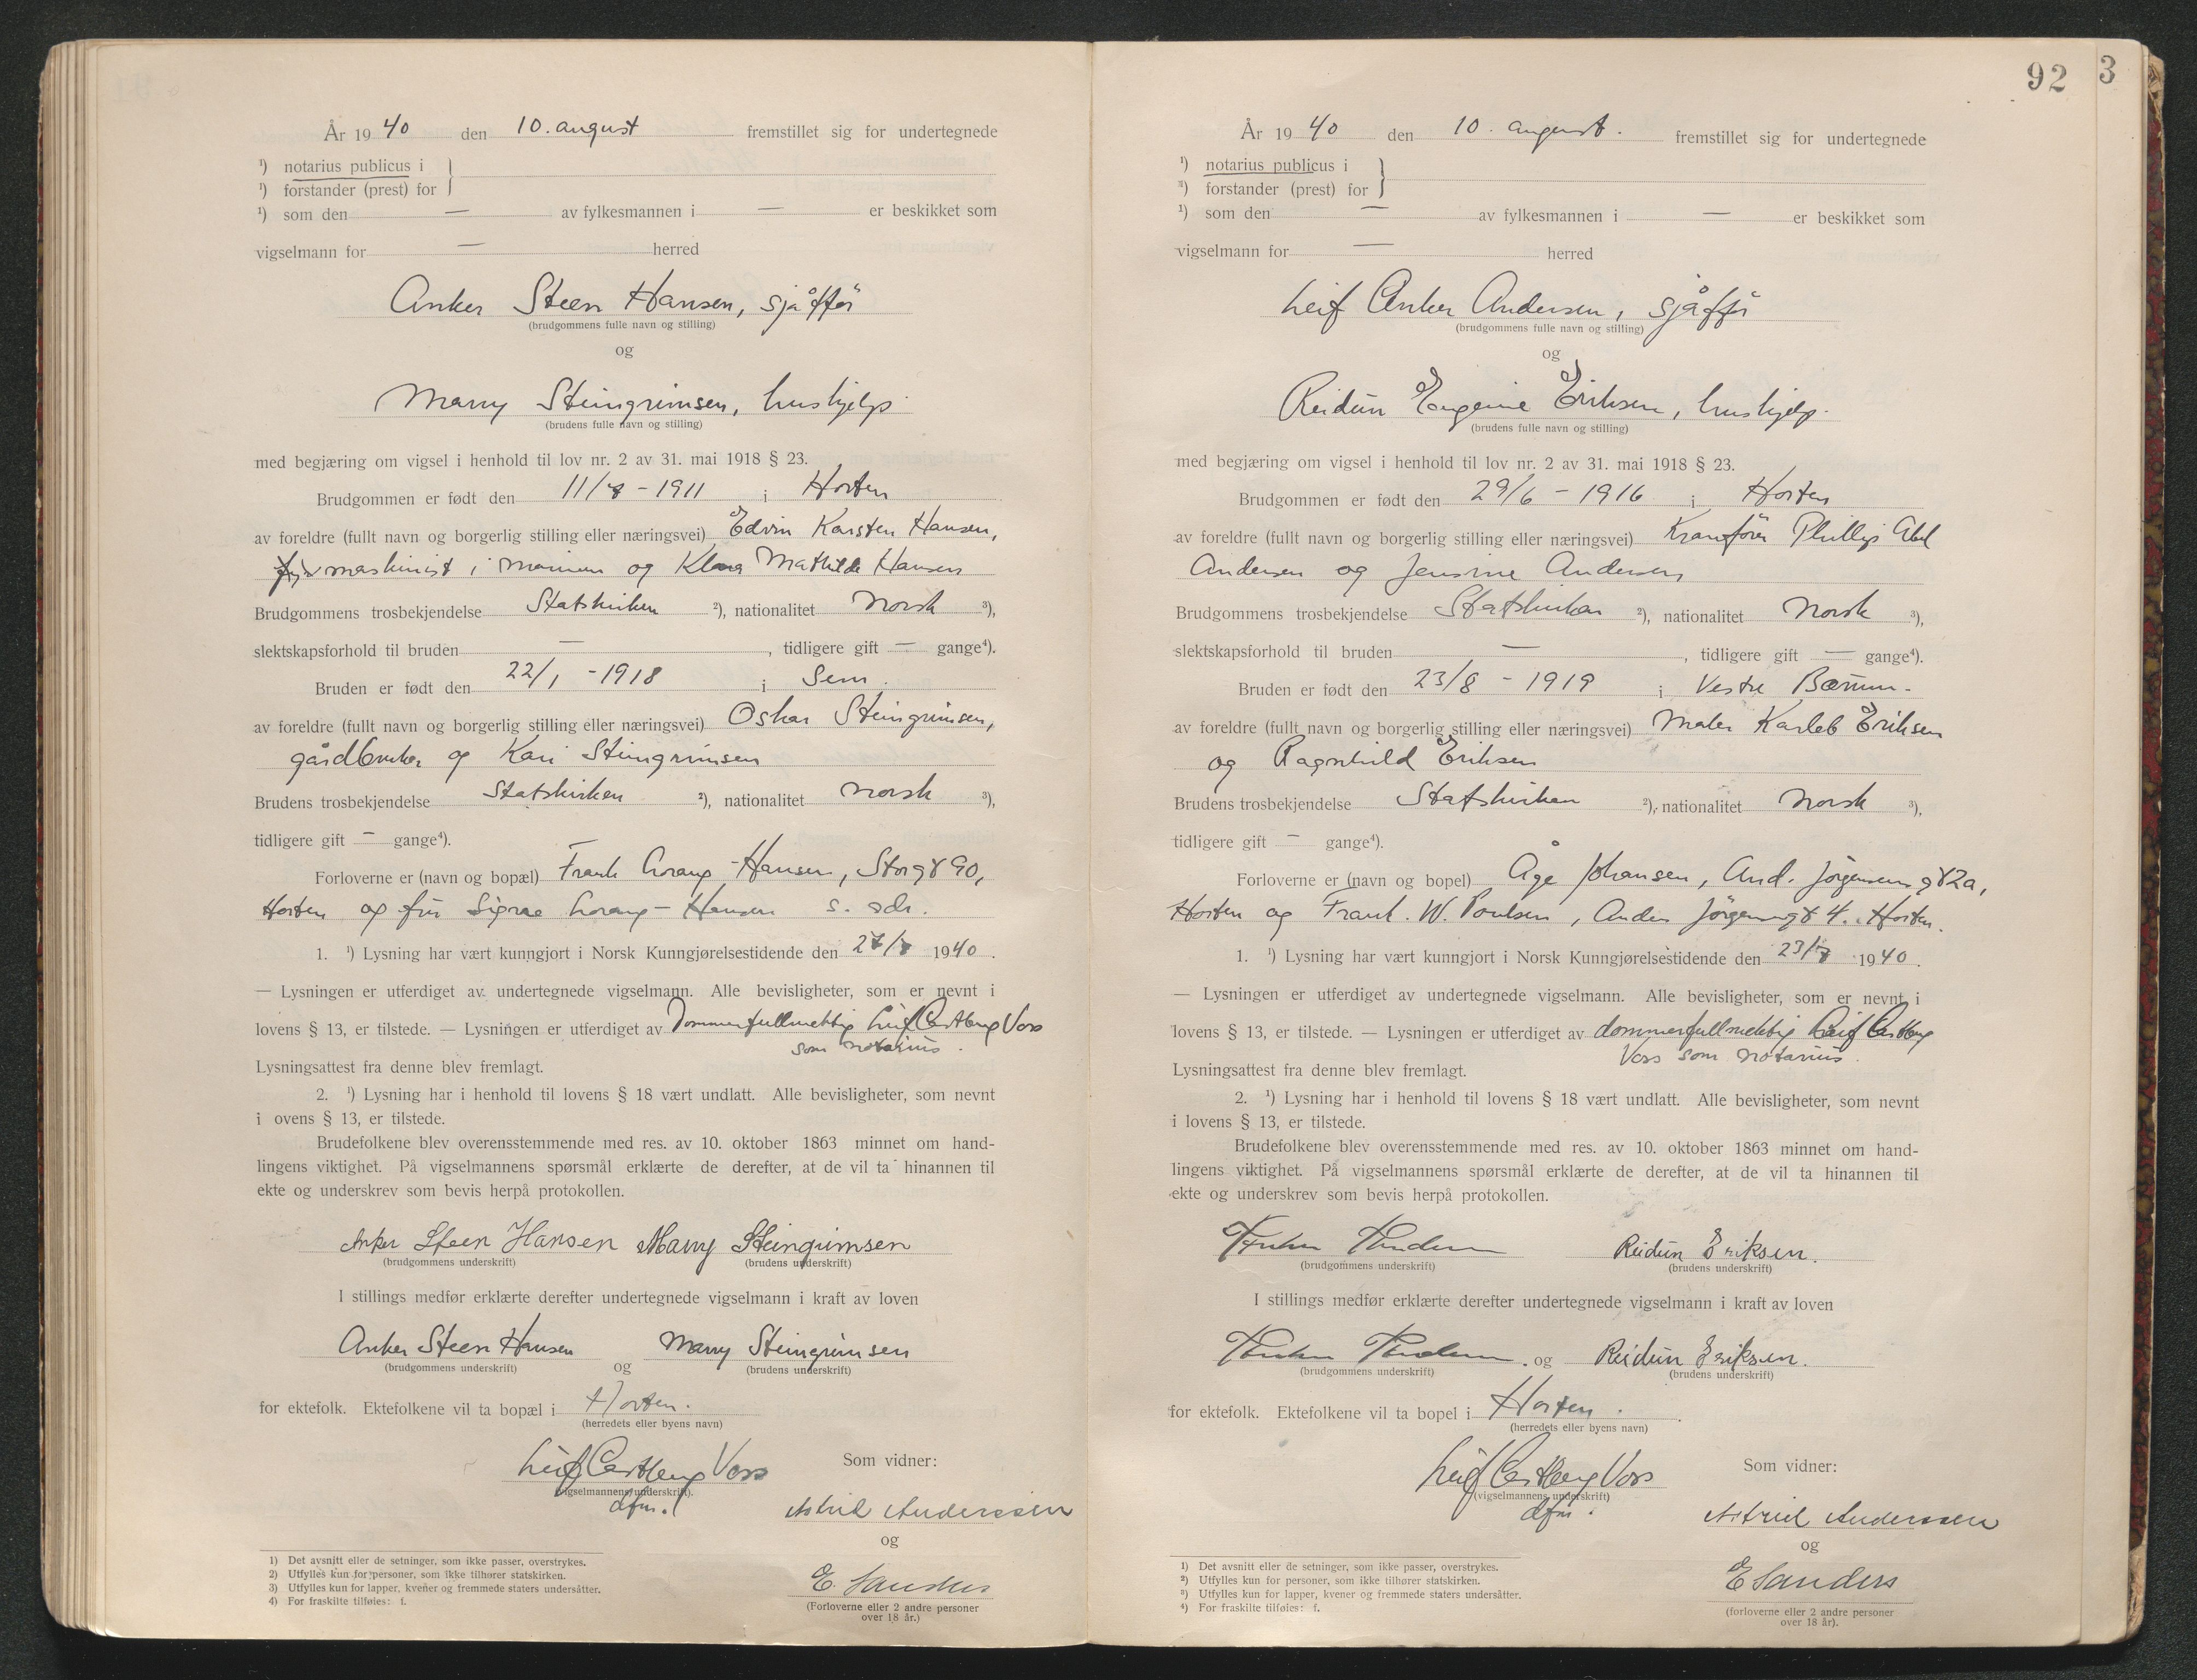 År 1940 den 10. august fremstillet sig for undertegnede
¹) notarius publicus i
¹) forstander (prest) for
¹) som den — av fylkesmannen i — er beskikket som
vigselmann for — herred
Anker Steen Hansen, sjåffør
(brudgommens fulle navn og stilling)
og
Marry Steingrimsen, hushjelp
(brudens fulle navn og stilling)
med begjæring om vigsel i henhold til lov nr. 2 av 31. mai 1918 § 23.
Brudgommen er født den 11/8 - 1911 i Horten
av foreldre (fullt navn og borgerlig stilling eller næringsvei) Edvin Karsten Hansen,
maskinist i marinen og Klara Mathilde Hansen
Brudgommens trosbekjendelse Statskirken ²), nationalitet norsk ³),
slektskapsforhold til bruden —, tidligere gift — gange⁴).
Bruden er født den 22/1 - 1918 i Sem.
av foreldre (fullt navn og borgerlig stilling eller næringsvei) Oskar Steingrimsen,
gårdbruker og Kari Steingrimsen
Brudens trosbekjendelse Statskirken ²), nationalitet norsk ³),
tidligere gift — gange⁴).
Forloverne er (navn og bopæl) Frank Lorang-Hansen, Storgt 90,
Horten og fru Signe Lorang-Hansen s. adr.
1. ¹) Lysning har vært kunngjort i Norsk Kunngjørelsestidende den 27/7 1940.
— Lysningen er utferdiget av undertegnede vigselmann. Alle bevisligheter, som er nevnt i
lovens § 13, er tilstede. — Lysningen er utferdiget av Dommerfullmektig Leif Castberg Voss
som notarius.
Lysningsattest fra denne blev fremlagt.
2. ¹) Lysning har i henhold til lovens § 18 vært undlatt. Alle bevisligheter, som nevnt
i ovens § 13, er tilstede.
Brudefolkene blev overensstemmende med res. av 10. oktober 1863 minnet om hand-
lingens viktighet. På vigselmannens spørsmål erklærte de derefter, at de vil ta hinannen til
ekte og underskrev som bevis herpå protokollen.
Anker Steen Hansen Marry Steingrimsen
(brudgommens underskrift) (brudens underskrift)
I stillings medfør erklærte derefter undertegnede vigselmann i kraft av loven
Anker Steen Hansen og Marry Steingrimsen
(brudgommens underskrift) (brudens underskrift)
for ektefolk. Ektefolkene vil ta bopæl i Horten.
(herredets eller byens navn)
Leif Castberg Voss
(vigselmannens underskrift).
dfm.
Som vidner:
Astrid Anderssen
og
E. Sanders
(Forloverne eller 2 andre personer
over 18 år.)
1) Det avsnitt eller de setninger, som ikke passer, overstrykes.
2) Utfylles kun for personer, som ikke tilhører statskirken.
3) Utfylles kun for lapper, kvener og fremmede staters undersåtter.
4) For fraskilte tilføies: f.
92
3
År 1940 den 10. august. fremstillet sig for undertegnede
¹) notarius publicus i
¹) forstander (prest) for
¹) som den — av fylkesmannen i — er beskikket som
vigselmann for — herred
Leif Anker Andersen, sjåffør
(brudgommens fulle navn og stilling)
og
Reidun Eugenie Eriksen, hushjelp.
(brudens fulle navn og stilling)
med begjæring om vigsel i henhold til lov nr. 2 av 31. mai 1918 § 23.
Brudgommen er født den 29/6 - 1916 i Horten
av foreldre (fullt navn og borgerlig stilling eller næringsvei) Kranfører Phillip Abel
Andersen og Jensine Andersen
Brudgommens trosbekjendelse Statskirken ²), nationalitet norsk ³),
slektskapsforhold til bruden —, tidligere gift — gange⁴).
Bruden er født den 23/8 - 1919 i Vestre Bærum.
av foreldre (fullt navn og borgerlig stilling eller næringsvei) Maler Karleb Eriksen
og Ragnhild Eriksen
Brudens trosbekjendelse Statskirken ²), nationalitet norsk ³),
tidligere gift — gange⁴).
Forloverne er (navn og bopel) Åge Johansen, And. Jørgensens gt 2a,
Horten og Frank. W. Poulsen, Anders Jørgensensgt 4. Horten.
1. ¹) Lysning har vært kunngjort i Norsk Kunngjørelsestidende den 23/7 1940.
— Lysningen er utferdiget av undertegnede vigselmann. Alle bevisligheter, som er nevnt i
lovens § 13, er tilstede. — Lysningen er utferdiget av dommerfullmektig Leif Castberg
Voss som notarius.
Lysningsattest fra denne blev fremlagt.
2. ¹) Lysning har i henhold til lovens § 18 vært undlatt. Alle bevisligheter, som nevnt
i lovens § 13, er tilstede.
Brudefolkene blev overensstemmende med res. av 10. oktober 1863 minnet om hand-
lingens viktighet. På vigselmannens spørsmål erklærte de derefter, at de vil ta hinannen til
ekte og underskrev som bevis herpå protokollen.
Anker Andersen Reidun Eriksen.
(brudgommens underskrift) (brudens underskrift)
I stillings medfør erklærte derefter undertegnede vigselmann i kraft av loven
Anker Andersen. og Reidun Eriksen.
(brudgommens underskrift) (brudens underskrift)
for ektefolk. Ektefolkene vil ta bopel i Horten.
(herredets eller byens navn)
Leif Castberg Voss
(vigselmannens underskrift)
dfm.
Som vidner:
Astrid Anderssen
og
E Sanders
(forloverne eller 2 andre personer
over 18 år).
1) Det avsnitt eller de setninger, som ikke passer, overstrykes.
2) Utfylles kun for personer, som ikke tilhører statskirken.
3) Utfylles kun for lapper, kvener og fremmede staters undersåtter.
4) For fraskilte tilføies: f.